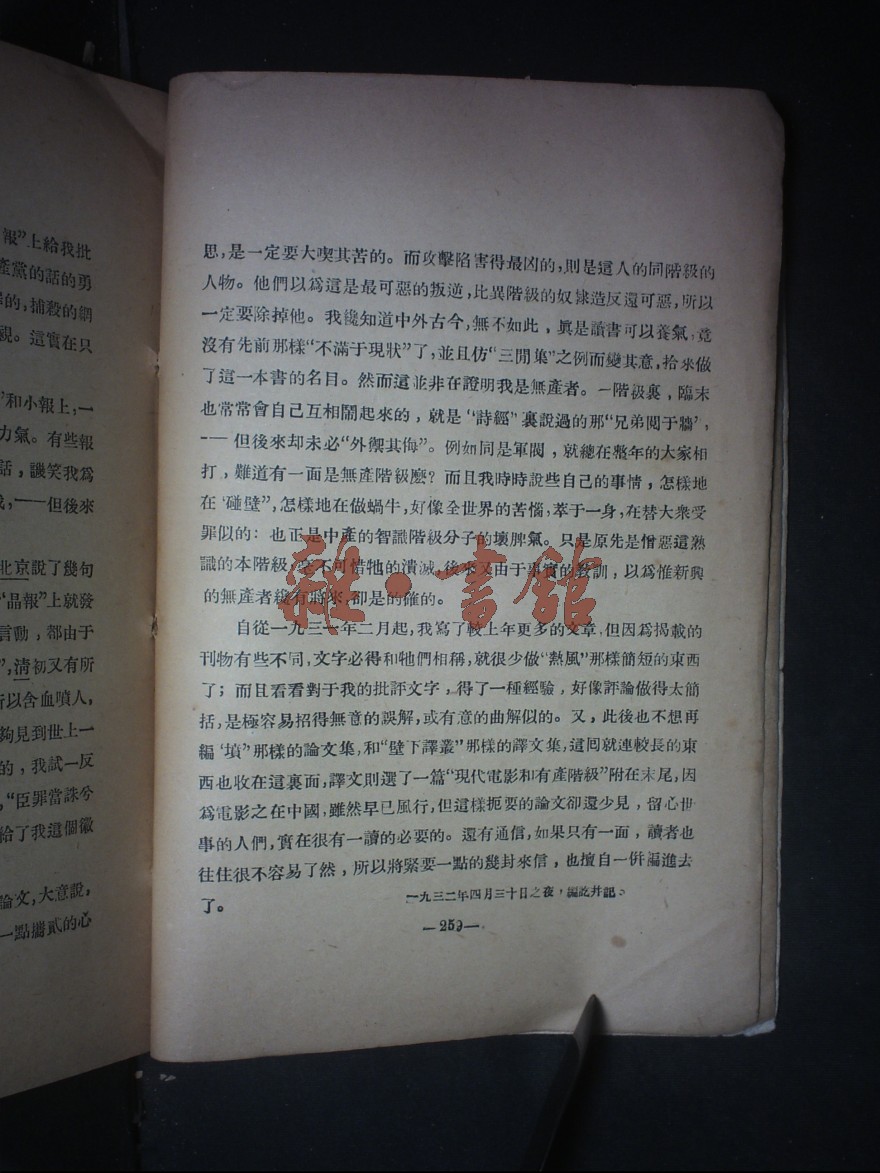 報”上給我批
產黨的話的勇
的,捕殺的網
視。這實在只
”和小報上,一
力氣。有些報
話,譏笑我爲
,——但後來
北京說了幾句
“晶報”上就發
言動,都由于
”,清初又有所
所以含血噴人,
夠見到世上一
的,我試一反
,“臣罪當誅兮
給了我這個徽
論文,大意說,
一點攜貳的心
思,是一定要大喫其苦的。而攻擊陷害得最凶的,則是這人的同階級的
人物。他們以爲這是最可惡的叛逆,比異階級的奴隸造反還可惡,所以
一定要除掉他。我纔知道中外古今,無不如此,眞是讀書可以養氣,竟
沒有先前那樣“不滿于現狀”了,並且仿“三閒集”之例而變其意,拾來做
了這一本書的名目。然而這並非在證明我是無產者。一階級裏,臨末
也常常會自己互相鬧起來的,就是“詩經”裏說過的那“兄弟鬩于牆’,
——但後來却未必“外禦其侮”。例如同是軍閥,就總在整年的大家相
打,難道有一面是無產階級麽?而且我時時說些自己的事情,怎樣地
在‘碰壁”,怎樣地在做蝸牛,好像全世界的苦惱,萃于一身,在替大衆受
罪似的:也正是中產的智識階級分子的壞脾氣。只是原先是憎惡這熟
識的本階級,毫不可惜牠的潰滅,後來又由于事實的教訓,以爲惟新興
的無產者纔有將來,卻是的確的。
雜·書館
自從一九三一年二月起,我寫了較上年更多的文章,但因爲揭載的
刊物有些不同,文字必得和牠們相稱,就很少做“熱風”那樣簡短的東西
了;而且看看對于我的批評文字,得了一種經驗,好像評論做得太簡
括,是極容易招得無意的誤解,或有意的曲解似的。又,此後也不想再
編‘墳”那樣的論文集,和“壁下譯叢”那樣的譯文集,這囘就連較長的東
西也收在這裏面,譯文則選了一篇“現代電影和有產階級”附在末尾,因
爲電影之在中國,雖然早已風行,但這樣扼要的論文卻還少見,留心世
事的人們,實在很有一讀的必要的。還有通信,如果只有一面,讀者也
往往很不容易了然,所以將緊要一點的幾封來信,也擅自一併編進去
了。
一九三二年四月三十日之夜,編訖并記。
—259—